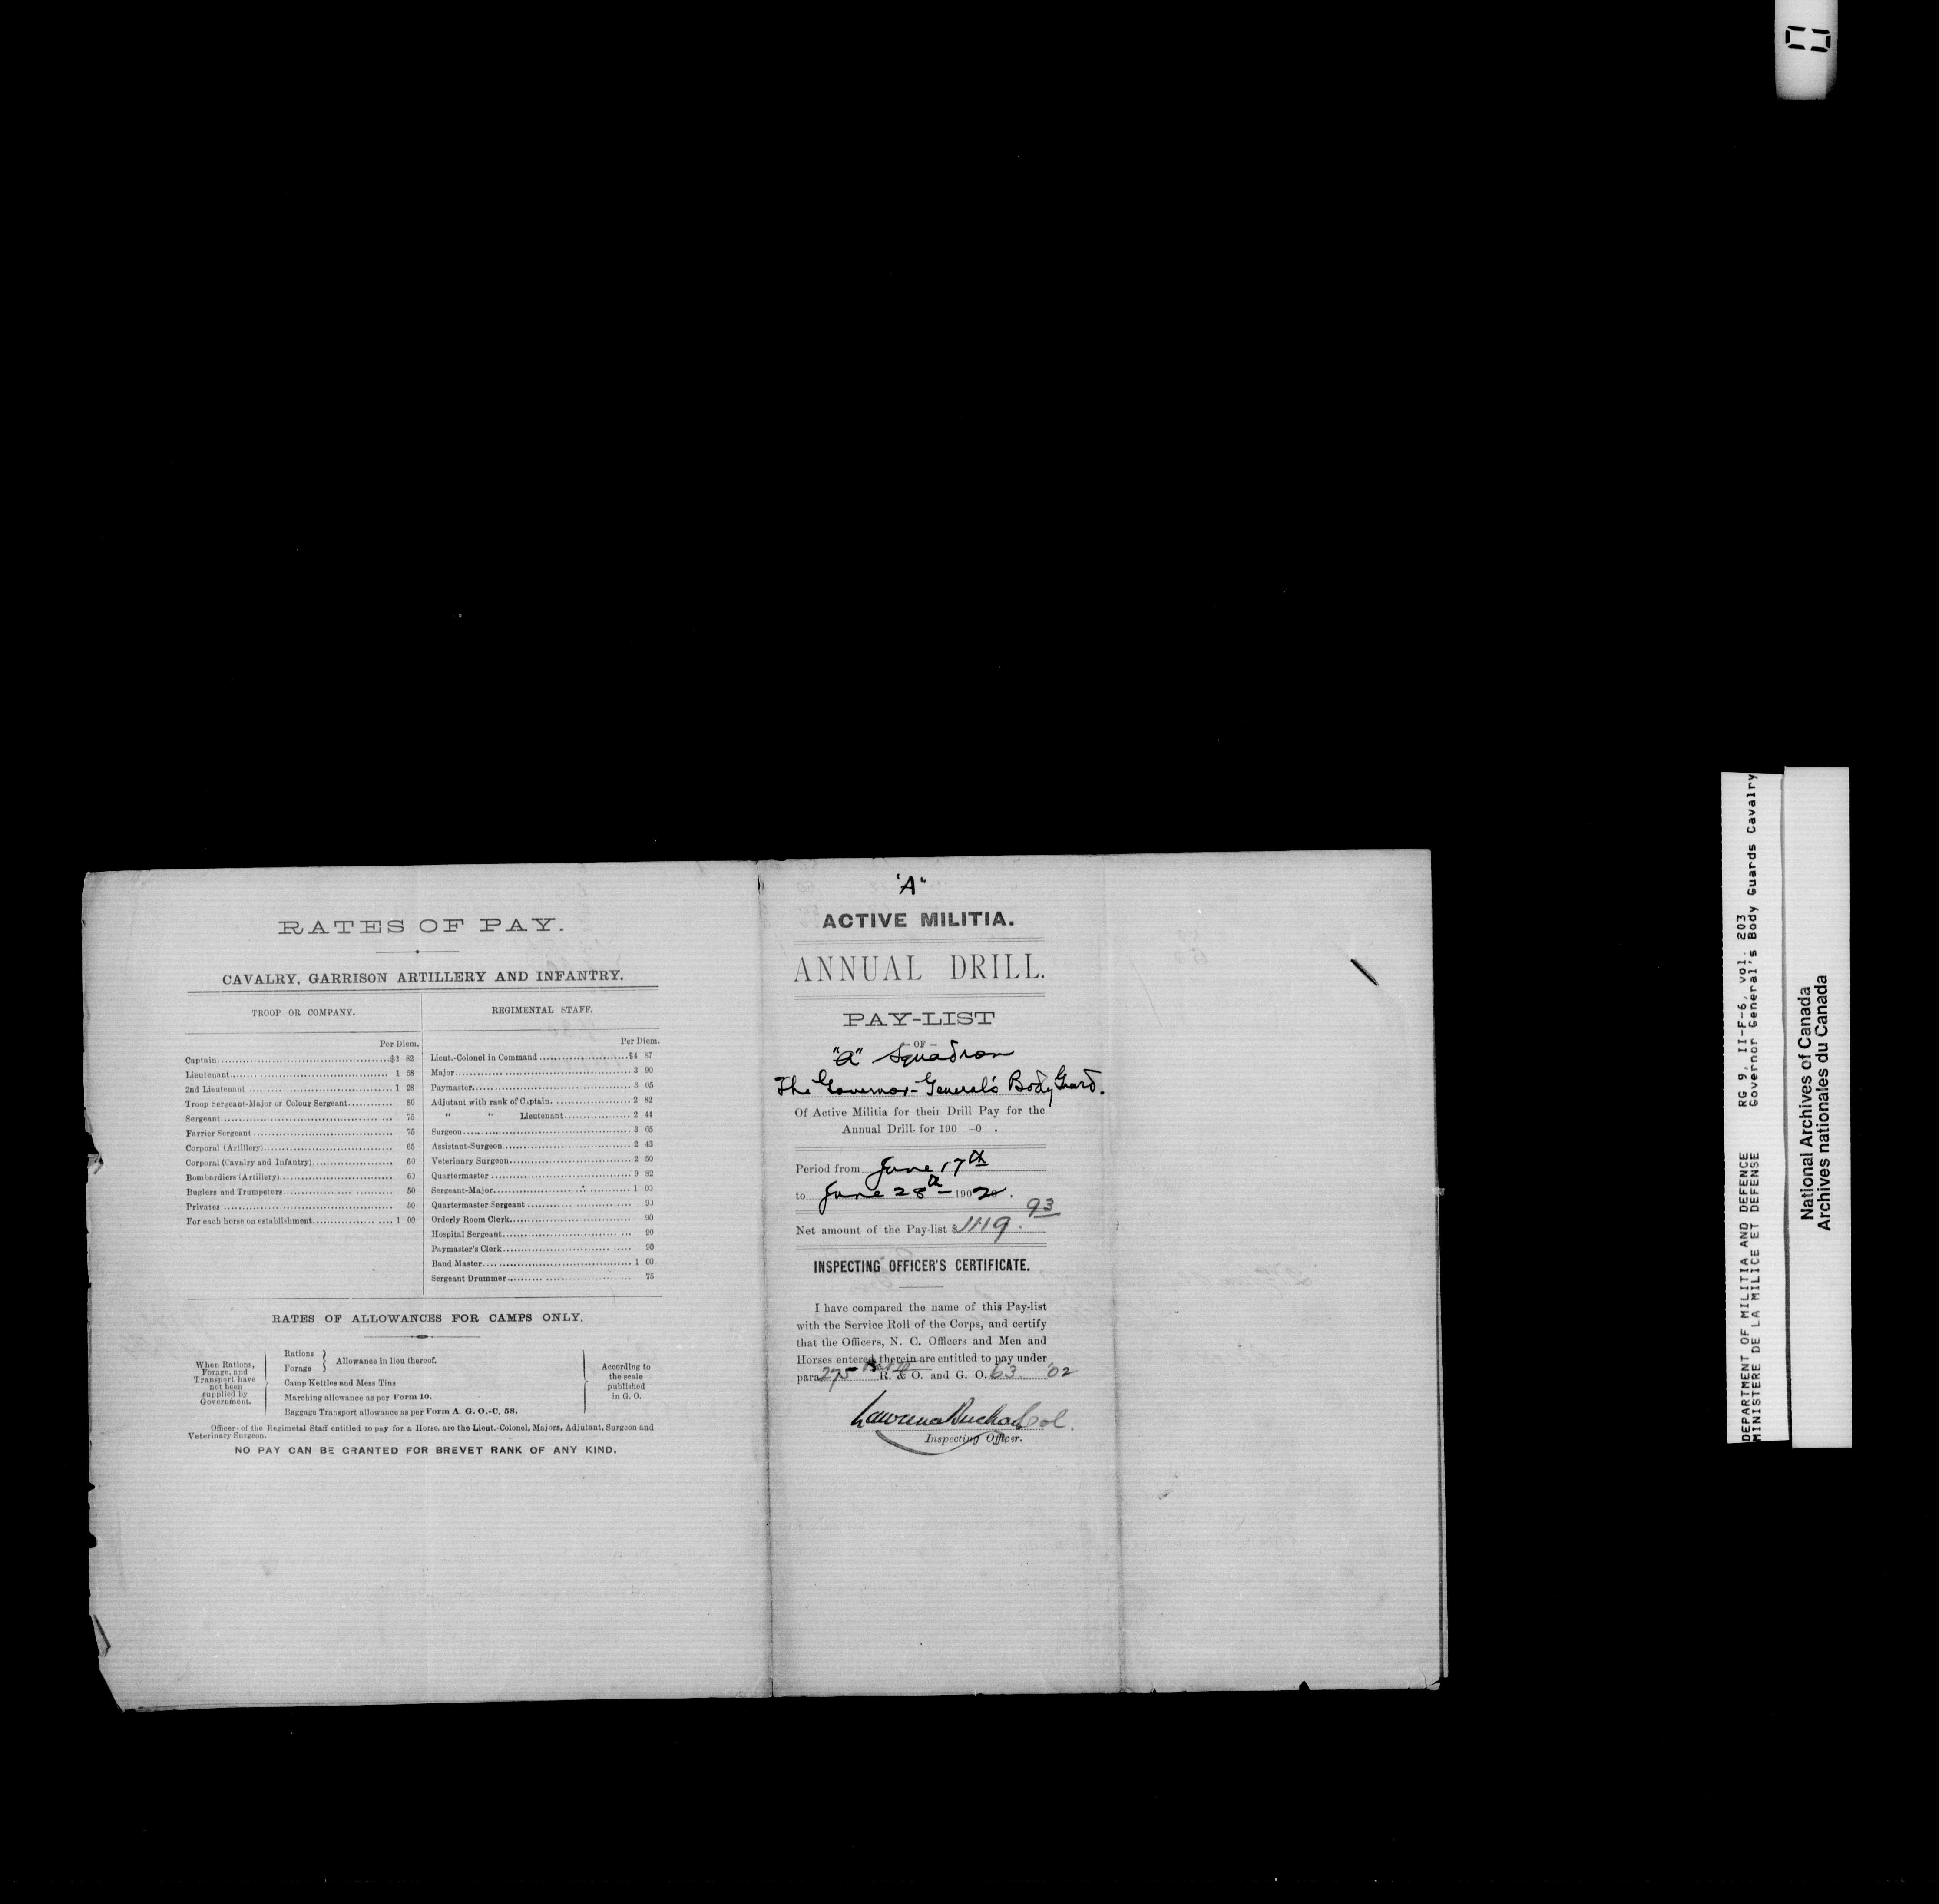 RATES OF PAY.
CAVALRY, GARRISON ARTILLERY AND INFANTRY.
TROOP OR COMPANY.
Per Diem.
Captain $2 82
Lieutenant 1 58
2nd Lieutenant 1 28
Troop Sergeant-Major or Colour Sergeant 80
Sergeant 75
Farrier Sergeant 75
Corporal (Artillery) 65
Corporal (Cavalry and Infantry) 60
Bombardiers (Artillery) 60
Buglers and Trumpeters 50
Privates 50
For each horse on establishment 1 00
REGIMENTAL STAFF.
Per Diem.
Lieut.-Colonel in Command $4 87
Major 3 90
Paymaster 3 05
Adjutant with rank of Captain 2 82
" " Lieutenant 2 44
Surgeon 3 65
Assistant-Surgeon 2 43
Veterinary Surgeon 2 50
Quartermaster 9 82
Sergeant-Major 1 00
Quartermaster Sergeant 90
Orderly Room Clerk 90
Hospital Sergeant 90
Paymaster's Clerk 90
Band Master 1 00
Sergeant Drummer 75
RATES OF ALLOWANCES FOR CAMPS ONLY.
When Rations, Forage, and Transport have not been supplied by Government.
Rations
Forage
Allowance in lieu thereof.
Camp Kettles and Mess Tins
Marching allowance as per Form 10.
Baggage Transport allowance as per Form A. G. O.-C. 58.
According to the scale published in G. O.
Officers of the Regimetal Staff entitled to pay for a Horse, are the Lieut.-Colonel, Majors, Adjutant, Surgeon and
Veterinary Surgeon.
NO PAY CAN BE GRANTED FOR BREVET RANK OF ANY KIND.
"A"
ACTIVE MILITIA.
ANNUAL DRILL.
PAY-LIST
– OF –
"A" Squadron
The Governor-General's Body Guard.
Of Active Militia for their Drill Pay for the
Annual Drill for 190 –0 .
Period from June 17th
to June 28th – 1902 .
Net amount of the Pay-list $1119.93
INSPECTING OFFICER'S CERTIFICATE.
I have compared the name of this Pay-list
with the Service Roll of the Corps, and certify
that the Officers, N. C. Officers and Men and
Horses entered therein are entitled to pay under
para 275 R. & O. and G. O. 63 '02
Lawrence Buchan Col.
Inspecting Officer.
DEPARTMENT OF MILITIA AND DEFENCE RG 9, II-F-6, vol. 203
MINISTERE DE LA MILICE ET DEFENSE Governor General's Body Guards Cavalry
National Archives of Canada
Archives nationales du Canada